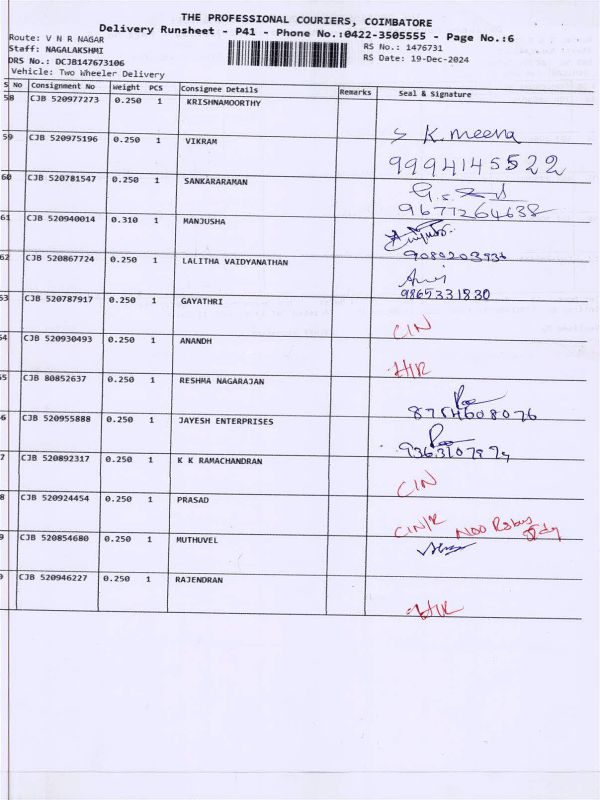 THE PROFESSIONAL COURIERS, COIMBATORE
Delivery Runsheet - P41 - Phone No.:0422-3505555 - Page No.:6
Route: V N R NAGAR
Staff: NAGALAKSHMI
DRS No.: DCJB147673106
Vehicle: Two Wheeler Delivery
RS No.: 1476731
RS Date: 19-Dec-2024
S No Consignment No Weight PCS Consignee Details Remarks Seal & Signature
58 CJB 520977273 0.250 1 KRISHNAMOORTHY
S K. Meena
59 CJB 520975196 0.250 1 VIKRAM
9994145522
60 CJB 520781547 0.250 1 SANKARARAMAN
9677264638
61 CJB 520940014 0.310 1 MANJUSHA
62 CJB 520867724 0.250 1 LALITHA VAIDYANATHAN
9865331830
63 CJB 520787917 0.250 1 GAYATHRI
C/N
64 CJB 520930493 0.250 1 ANANDH
H/R
65 CJB 80852637 0.250 1 RESHMA NAGARAJAN
8754608076
6 CJB 520955888 0.250 1 JAYESH ENTERPRISES
7 CJB 520892317 0.250 1 K K RAMACHANDRAN
C/N
8 CJB 520924454 0.250 1 PRASAD
C/N/R
9 CJB 520854680 0.250 1 MUTHUVEL
0 CJB 520946227 0.250 1 RAJENDRAN
H/R